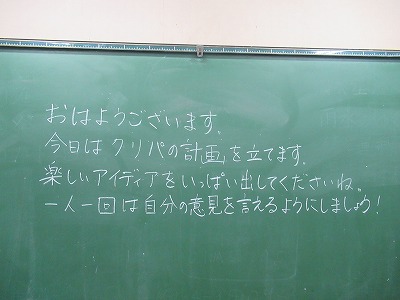 おはようございます。
今日はクリパの計画を立てます。
楽しいアイディアをいっぱい出してくださいね。
一人一回は自分の意見を言えるようにしましょう!